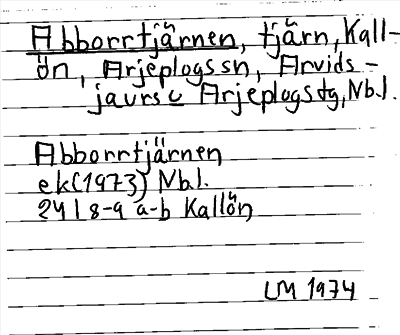 Abborrtjärnen, tjärn, Kall-
ön, Arjeplogs sn, Arvids-
jaurs o Arjeplogs tg, Nb.l.
Abborrtjärnen
ek (1973) Nb.l.
24 I 8-9 a-b Kallön
LM 1974